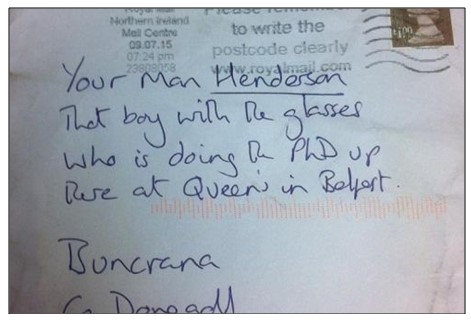 Royal Mail
Northern Ireland
Mail Centre
09.07.15
07:24 pm
23808058
Please remember
to write the
postcode clearly
www.royalmail.com
Your Man Henderson
That boy with the glasses
who is doing the PhD up
there at Queen's in Belfast.
Buncrana
Co Donegall